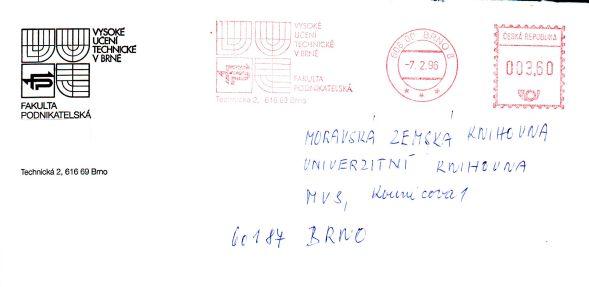 VYSOKÉ
UČENÍ
TECHNICKÉ
V BRNĚ
FAKULTA
PODNIKATELSKÁ
Technická 2, 616 69 Brno
VYSOKÉ
UČENÍ
TECHNICKÉ
V BRNĚ
FAKULTA
PODNIKATELSKÁ
Technická 2, 616 69 Brno
BRNO
-7.2.96
ČESKÁ REPUBLIKA
003,60
MORAVSKÁ ZEMSKÁ KNIHOVNA
UNIVERZITNÍ KNIHOVNA
MVS, Kounicova 1
60187 BRNO